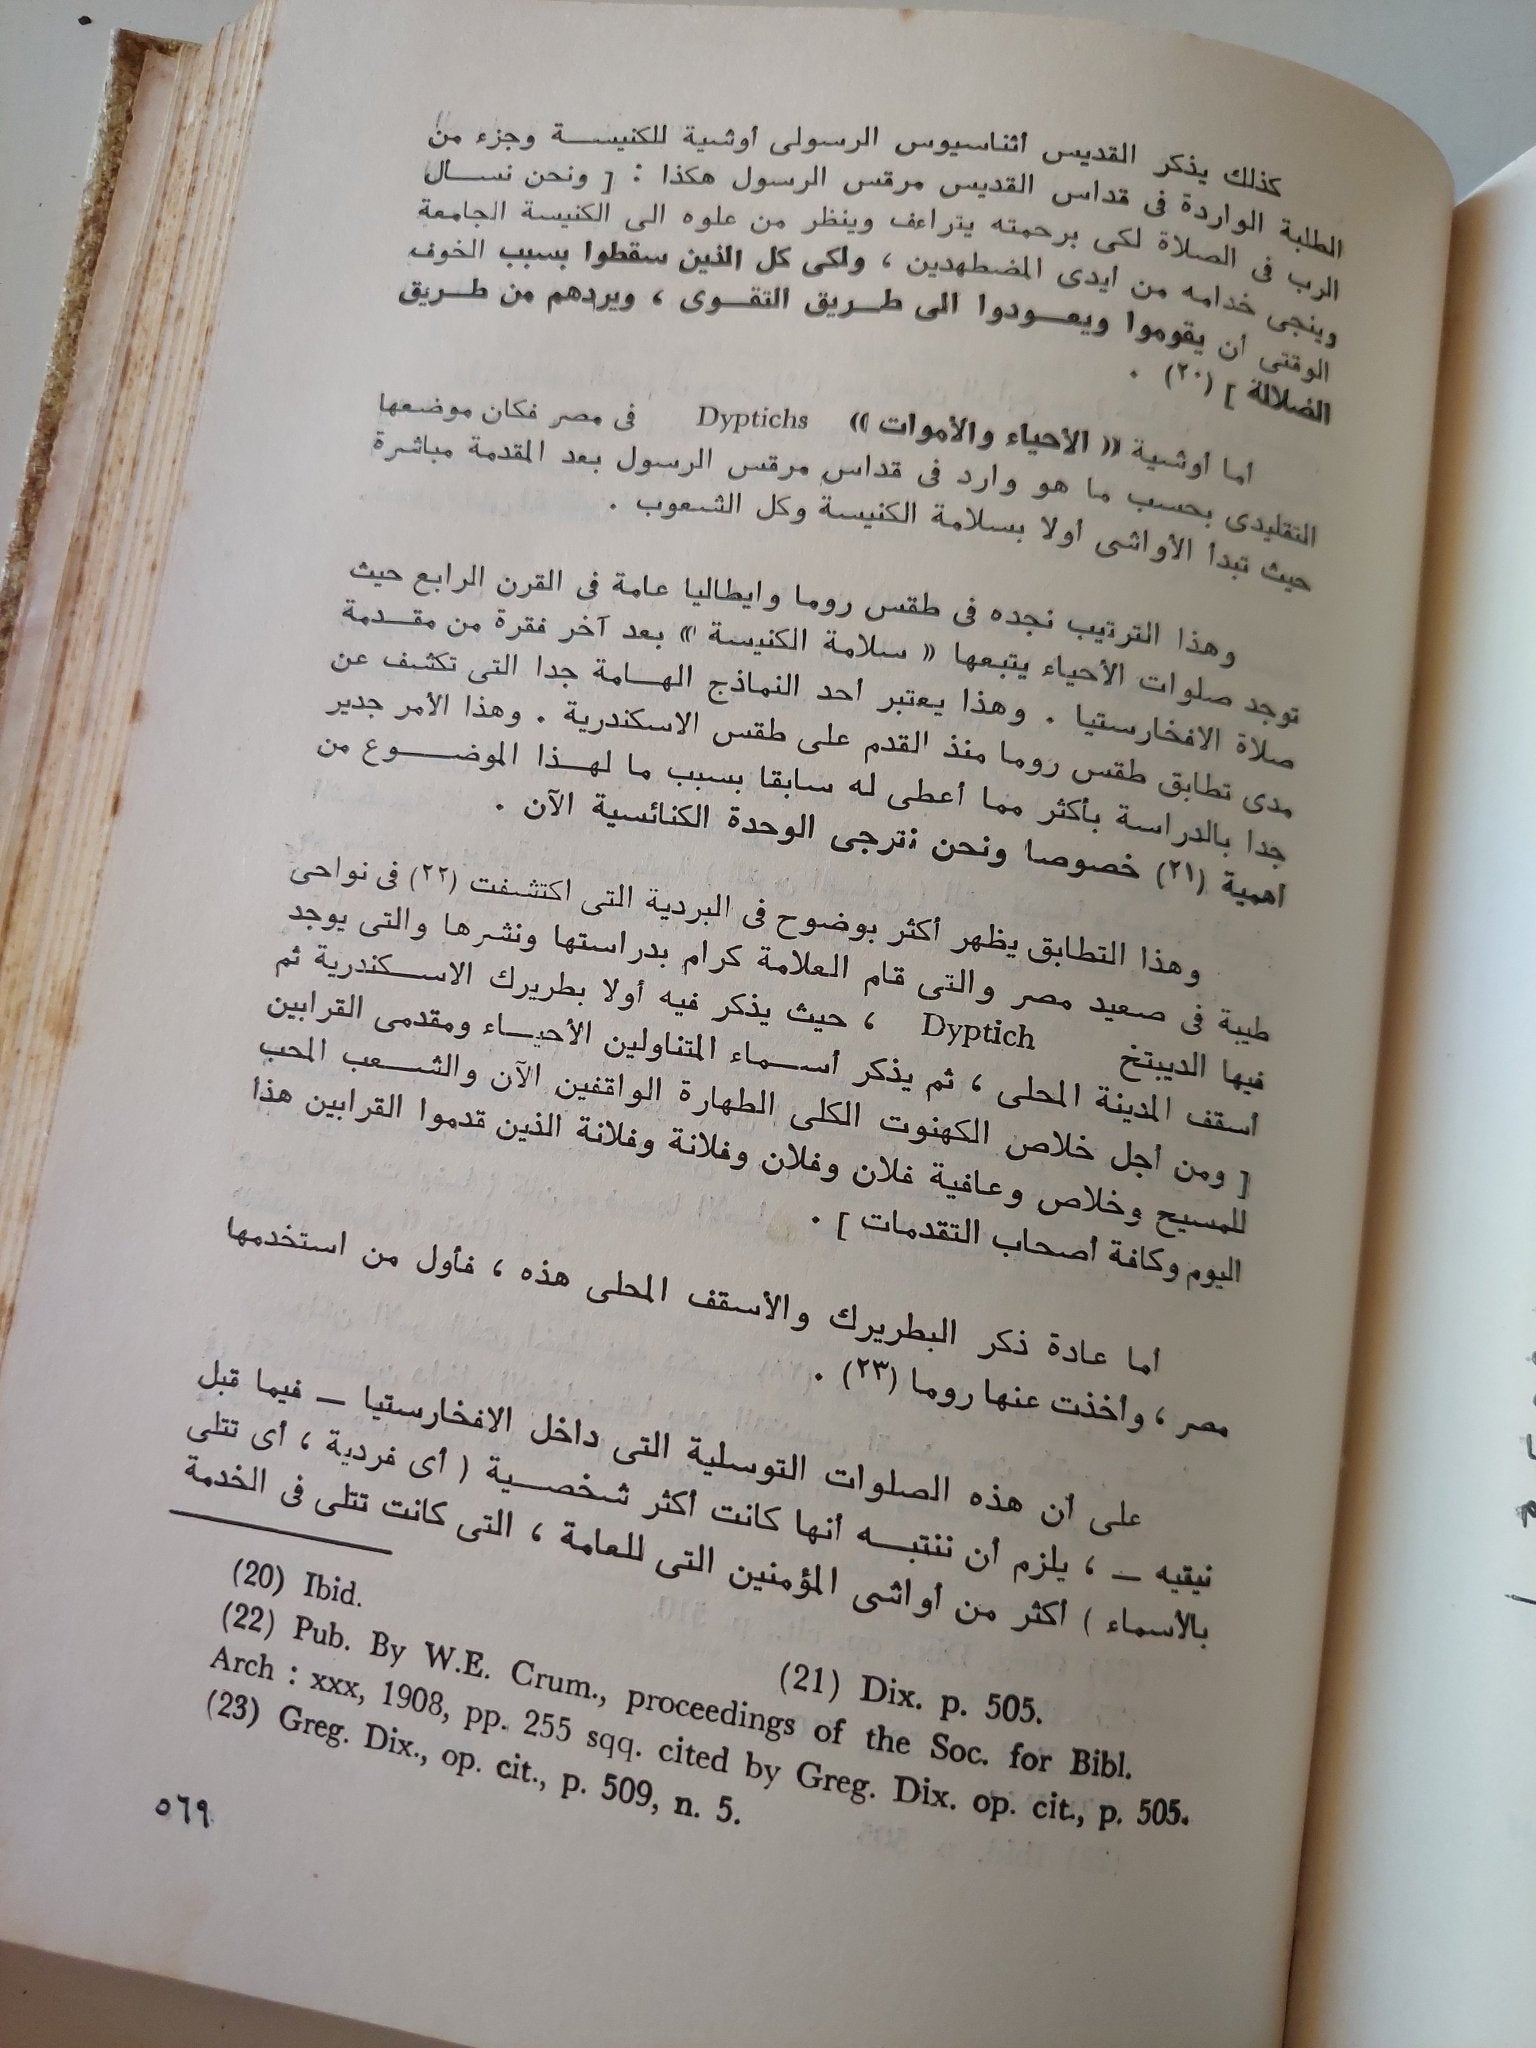 كذلك يذكر القديس أثناسيوس الرسولى أوشية للكنيســة وجزء من
الطلبة الواردة فى قداس القديس مرقس الرسول هكذا : [ ونحن نســال
الرب فى الصلاة لكى برحمته يتراءف وينظر من علوه الى الكنيسة الجامعة
وينجى خدامه من ايدى المضطهدين ، ولكى كل الذين سقطوا بسبب الخوف
الوقتى أن يقوموا ويعــودوا الى طــريق التقــوى ، ويردهم من طــريق
الضلالة ] (٢٠) .
أما أوشية « الأحياء والأموات » Dyptichs فى مصر فكان موضعها
التقليدى بحسب ما هو وارد فى قداس مرقس الرسول بعد المقدمة مباشرة
حيث تبدأ الأواشى أولا بسلامة الكنيسة وكل الشعوب .
وهذا الترتيب نجده فى طقس روما وايطاليا عامة فى القرن الرابع حيث
توجد صلوات الأحياء يتبعها « سلامة الكنيسة » بعد آخر فقرة من مقــدمة
صلاة الافخارستيا . وهذا يعتبر أحد النماذج الهــامة جدا التى تكشف عن
مدى تطابق طقس روما منذ القدم على طقس الاسكندرية . وهذا الأمر جدير
جدا بالدراسة بأكثر مما أعطى له سابقا بسبب ما لهــذا الموضــوع من
اهمية (٢١) خصوصا ونحن نترجى الوحدة الكنائسية الآن .
وهذا التطابق يظهر أكثر بوضوح فى البردية التى اكتشفت (٢٢) فى نواحى
طيبة فى صعيد مصر والتى قام العلامة كرام بدراستها ونشرها والتى يوجد
فيها الديبتخ Dyptich ، حيث يذكر فيه أولا بطريرك الاســكندرية ثم
أسقف المدينة المحلى ، ثم يذكر أســماء المتناولين الأحيــاء ومقدمى القرابين
[ ومن أجل خلاص الكهنوت الكلى الطهارة الواقفين الآن والشــعب المحب
للمسيح وخلاص وعافية فلان وفلان وفلانة وفلانة الذين قدموا القرابين هذا
اليوم وكافة أصحاب التقدمات ] .
أما عادة ذكر البطريرك والأسقف المحلى هذه ، فأول من استخدمها
مصر ، وأخذت عنها روما (٢٣) .
على أن هذه الصلوات التوسلية التى داخل الافخارستيا ــ فيما قبل
نيقيه ــ ، يلزم أن ننتبــه أنها كانت أكثر شخصــية ( أى فردية ، أى تتلى
بالأسماء ) أكثر من أواشى المؤمنين التى للعامة ، التى كانت تتلى فى الخدمة
(20) Ibid.
(21) Dix. p. 505.
(22) Pub. By W.E. Crum., proceedings of the Soc. for Bibl.
Arch : xxx, 1908, pp. 255 sqq. cited by Greg. Dix. op. cit., p. 505.
(23) Greg. Dix., op. cit., p. 509, n. 5.
٥٦٩